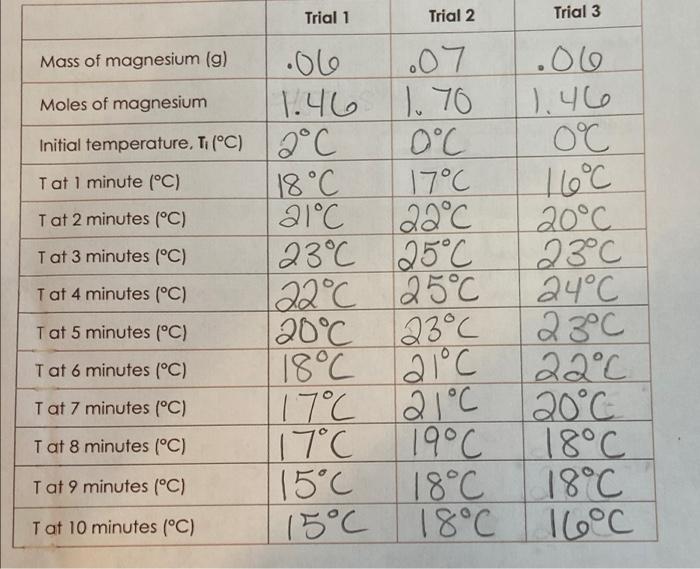 Trial 1 Trial 2 Trial 3
Mass of magnesium (g) .06 .07 .06
Moles of magnesium 1.46 1.70 1.46
Initial temperature, T₁ (°C) 2°C 0°C 0°C
T at 1 minute (°C) 18°C 17°C 16°C
T at 2 minutes (°C) 21°C 22°C 20°C
T at 3 minutes (°C) 23°C 25°C 23°C
T at 4 minutes (°C) 22°C 25°C 24°C
T at 5 minutes (°C) 20°C 23°C 23°C
T at 6 minutes (°C) 18°C 21°C 22°C
T at 7 minutes (°C) 17°C 21°C 20°C
T at 8 minutes (°C) 17°C 19°C 18°C
T at 9 minutes (°C) 15°C 18°C 18°C
T at 10 minutes (°C) 15°C 18°C 16°C